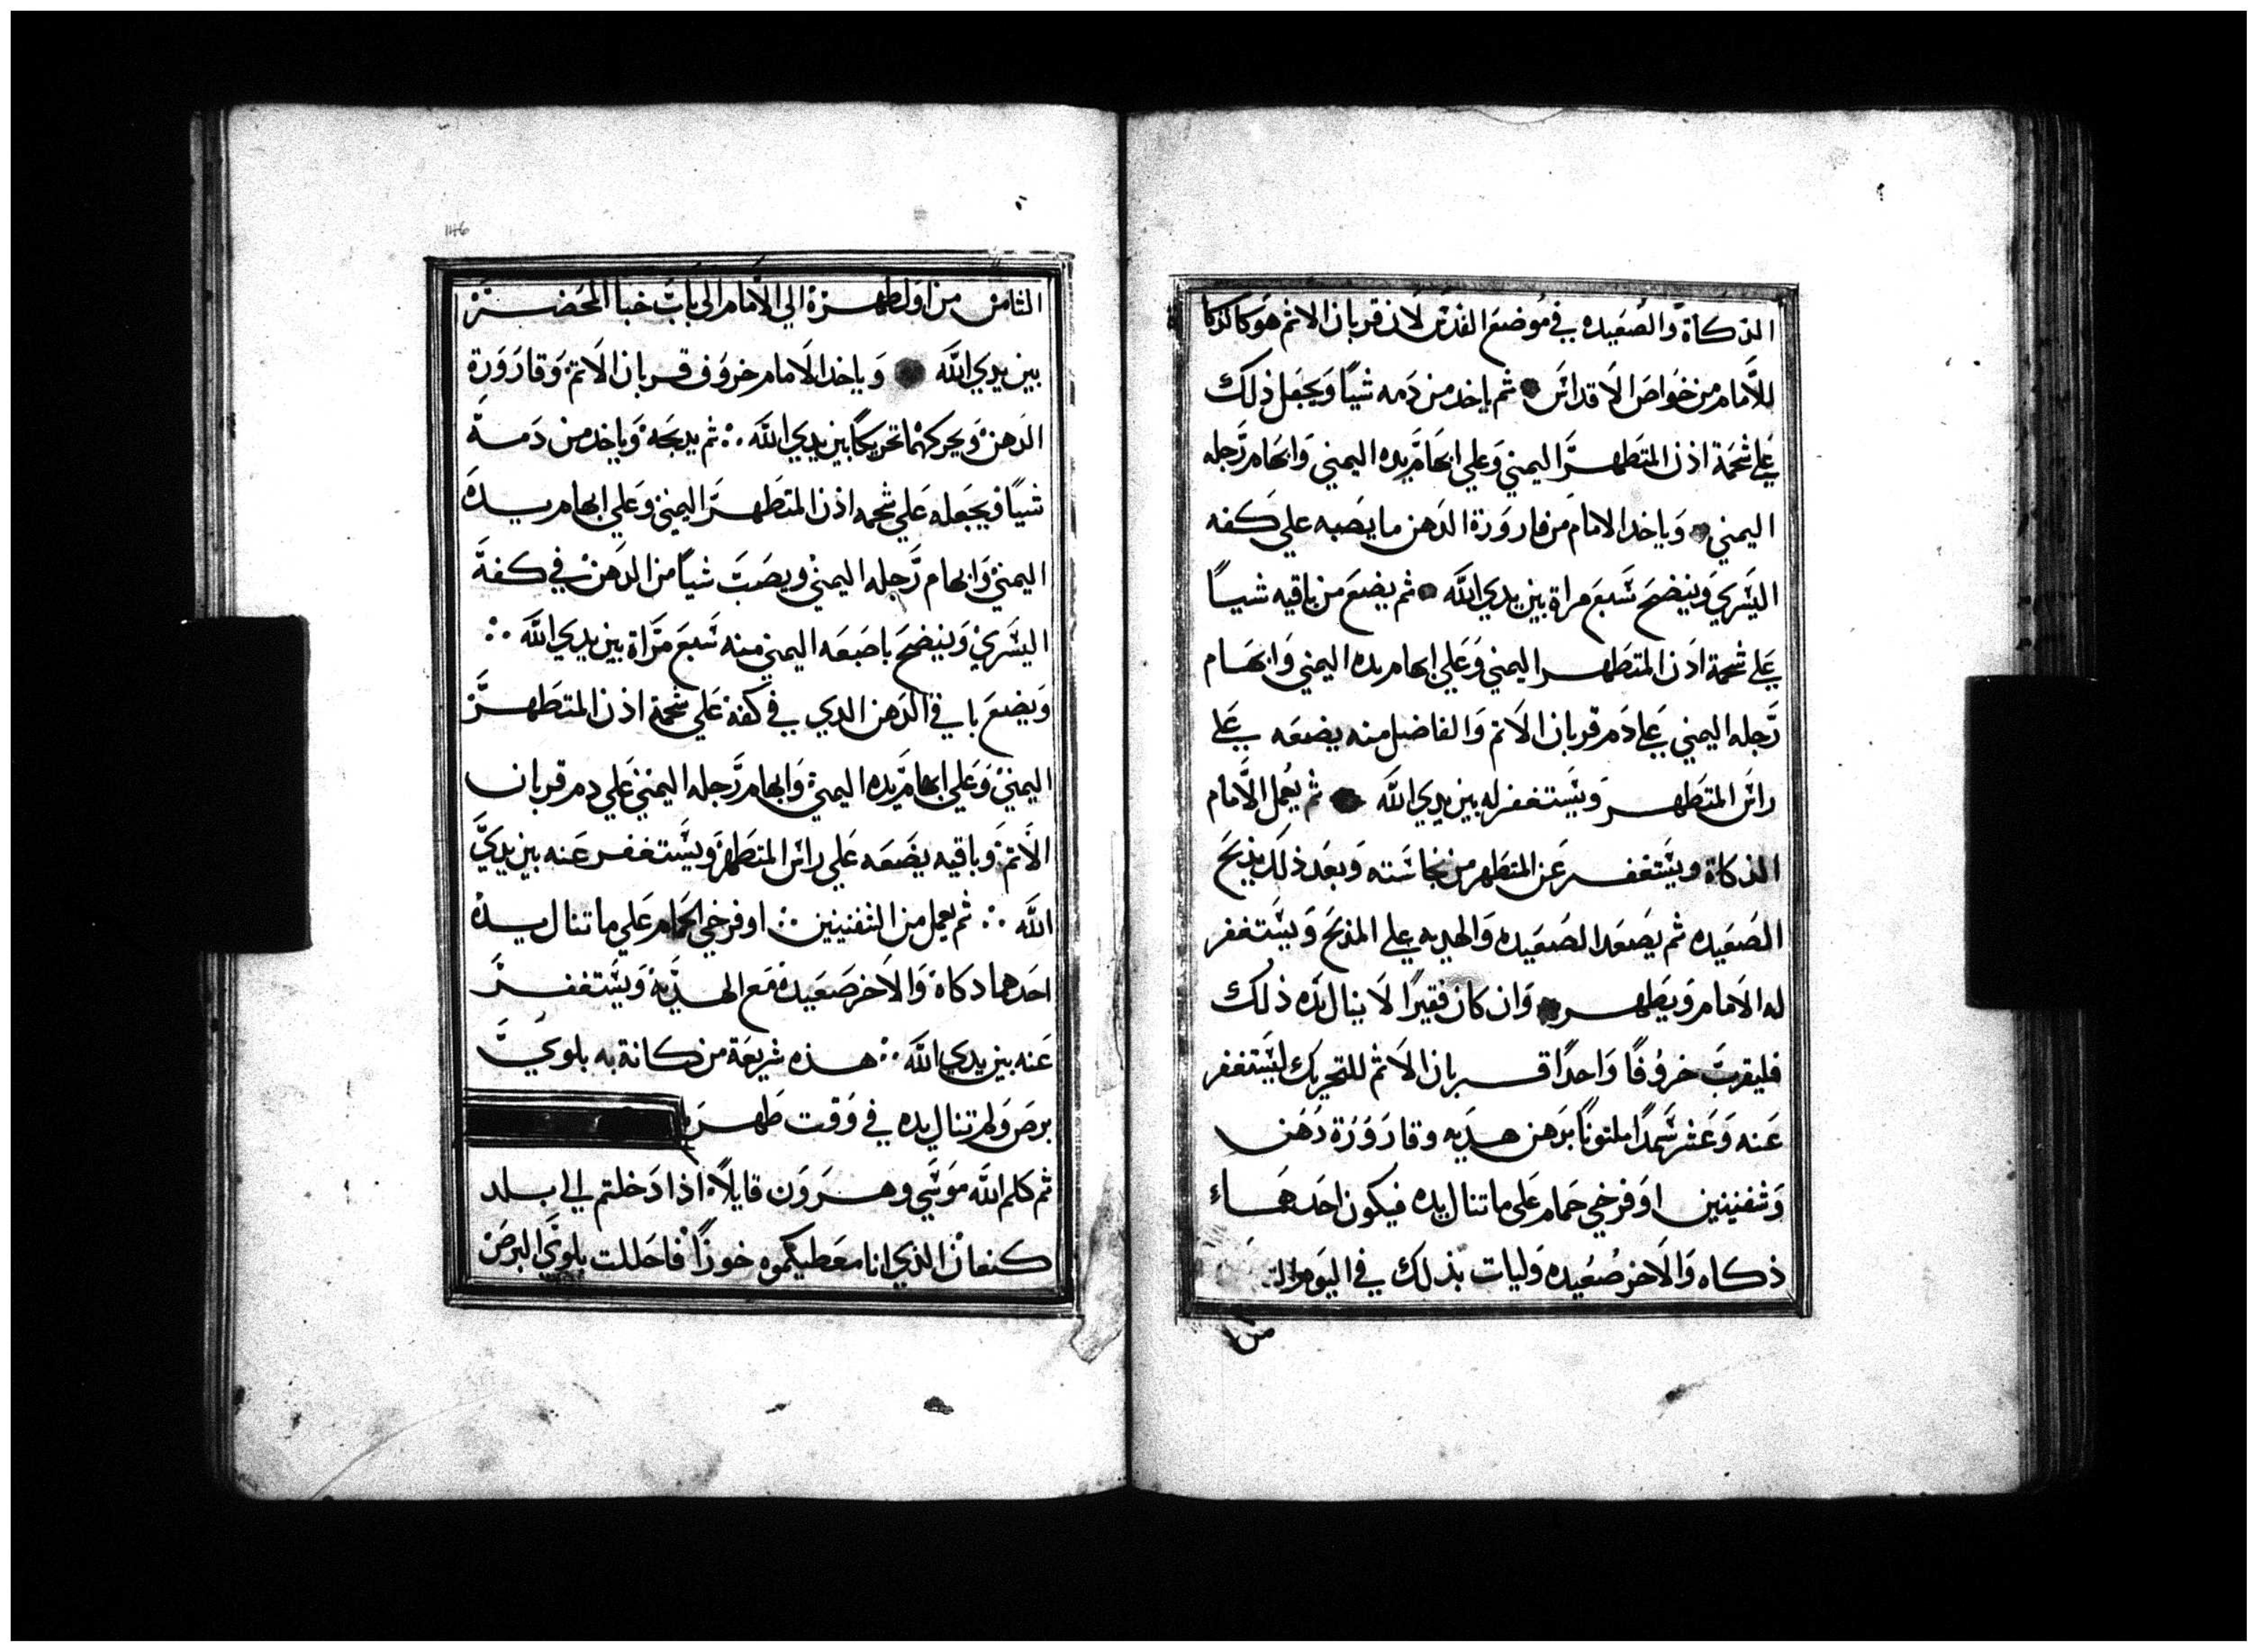 الذكاة والصعيده في موضع القدس لان قربان الاثم هو كالذكا
للامام من خواص الاقداس ثم ياخد من دمه شيا ويجعل ذلك
على شحمة اذن المتطهر اليمني وعلي ابهام يده اليمني وابهام رجله
اليمني وياخد الامام من قارورة الدهن ما يصبه علي كفه
اليسري وينضح سبع مراة بين يدي الله ثم يضع من باقيه شيا
على شحمة اذن المتطهر اليمني وعلي ابهام يده اليمني وابهام
رجله اليمني على دم قربان الاثم والفاضل منه يضعه على
راس المتطهر ويستغفر له بين يدي الله ثم يعمل الامام
الذكاة ويستغفر عن المتطهر من نجاسته وبعد ذلك يذبح
الصعيده ثم يصعد الصعيده والهديه على المذبح ويستغفر
له الامام ويطهر وان كان فقيرا لا ينال يده ذلك
فليقرب خروفا واحدا قربان الاثم للتحريك ليستغفر
عنه وعشر سمدا ملتوتا بدهن هديه وقارورة دهن
وشفنينين او فرخي حمام على ما تنال يده فيكون احدهما
ذكاه والاخر صعيده وليات بذلك في اليوم الثـ
من
146
الثامن من اول طهرة الي الامام الى باب خبا المحضر
بين يدي الله وياخد الامام خروف قربان الاثم وقارورة
الدهن ويحركهما تحريكا بين يدي الله ثم يدبحه وياخد من دمه
شيا فيجعله علي شحمه اذن المتطهر اليمني وعلي ابهام يده
اليمني وابهام رجله اليمني ويصب شيا من الدهن في كفه
اليسري وينضح باصبعه اليمني منه سبع مراة بين يدي الله
ويضع باقي الدهن الدي في كفه علي شحمة اذن المتطهر
اليمني وعلي ابهام يده اليمني وابهام رجله اليمني علي دم قربان
الاثم وباقيه يضعه علي راس المتطهر ويستغفر عنه بين يدي
الله ثم يعمل من الشفنينين او فرخي الحمام علي ما تنال يده
احدهما دكاة والاخر صعيده مع الهديه ويستغفر
عنه بين يدي الله هذه شريعة من كانة به بلوي
برص ولم تنال يده في وقت طهره
ثم كلم الله موسي وهرون قايلا اذا دخلتم الي بلد
كنعان الذي انا معطيكموه حوزا فاحللت بلوي البرص